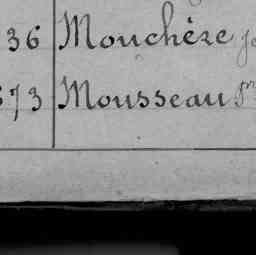 36 Mouchère
73 Mousseau